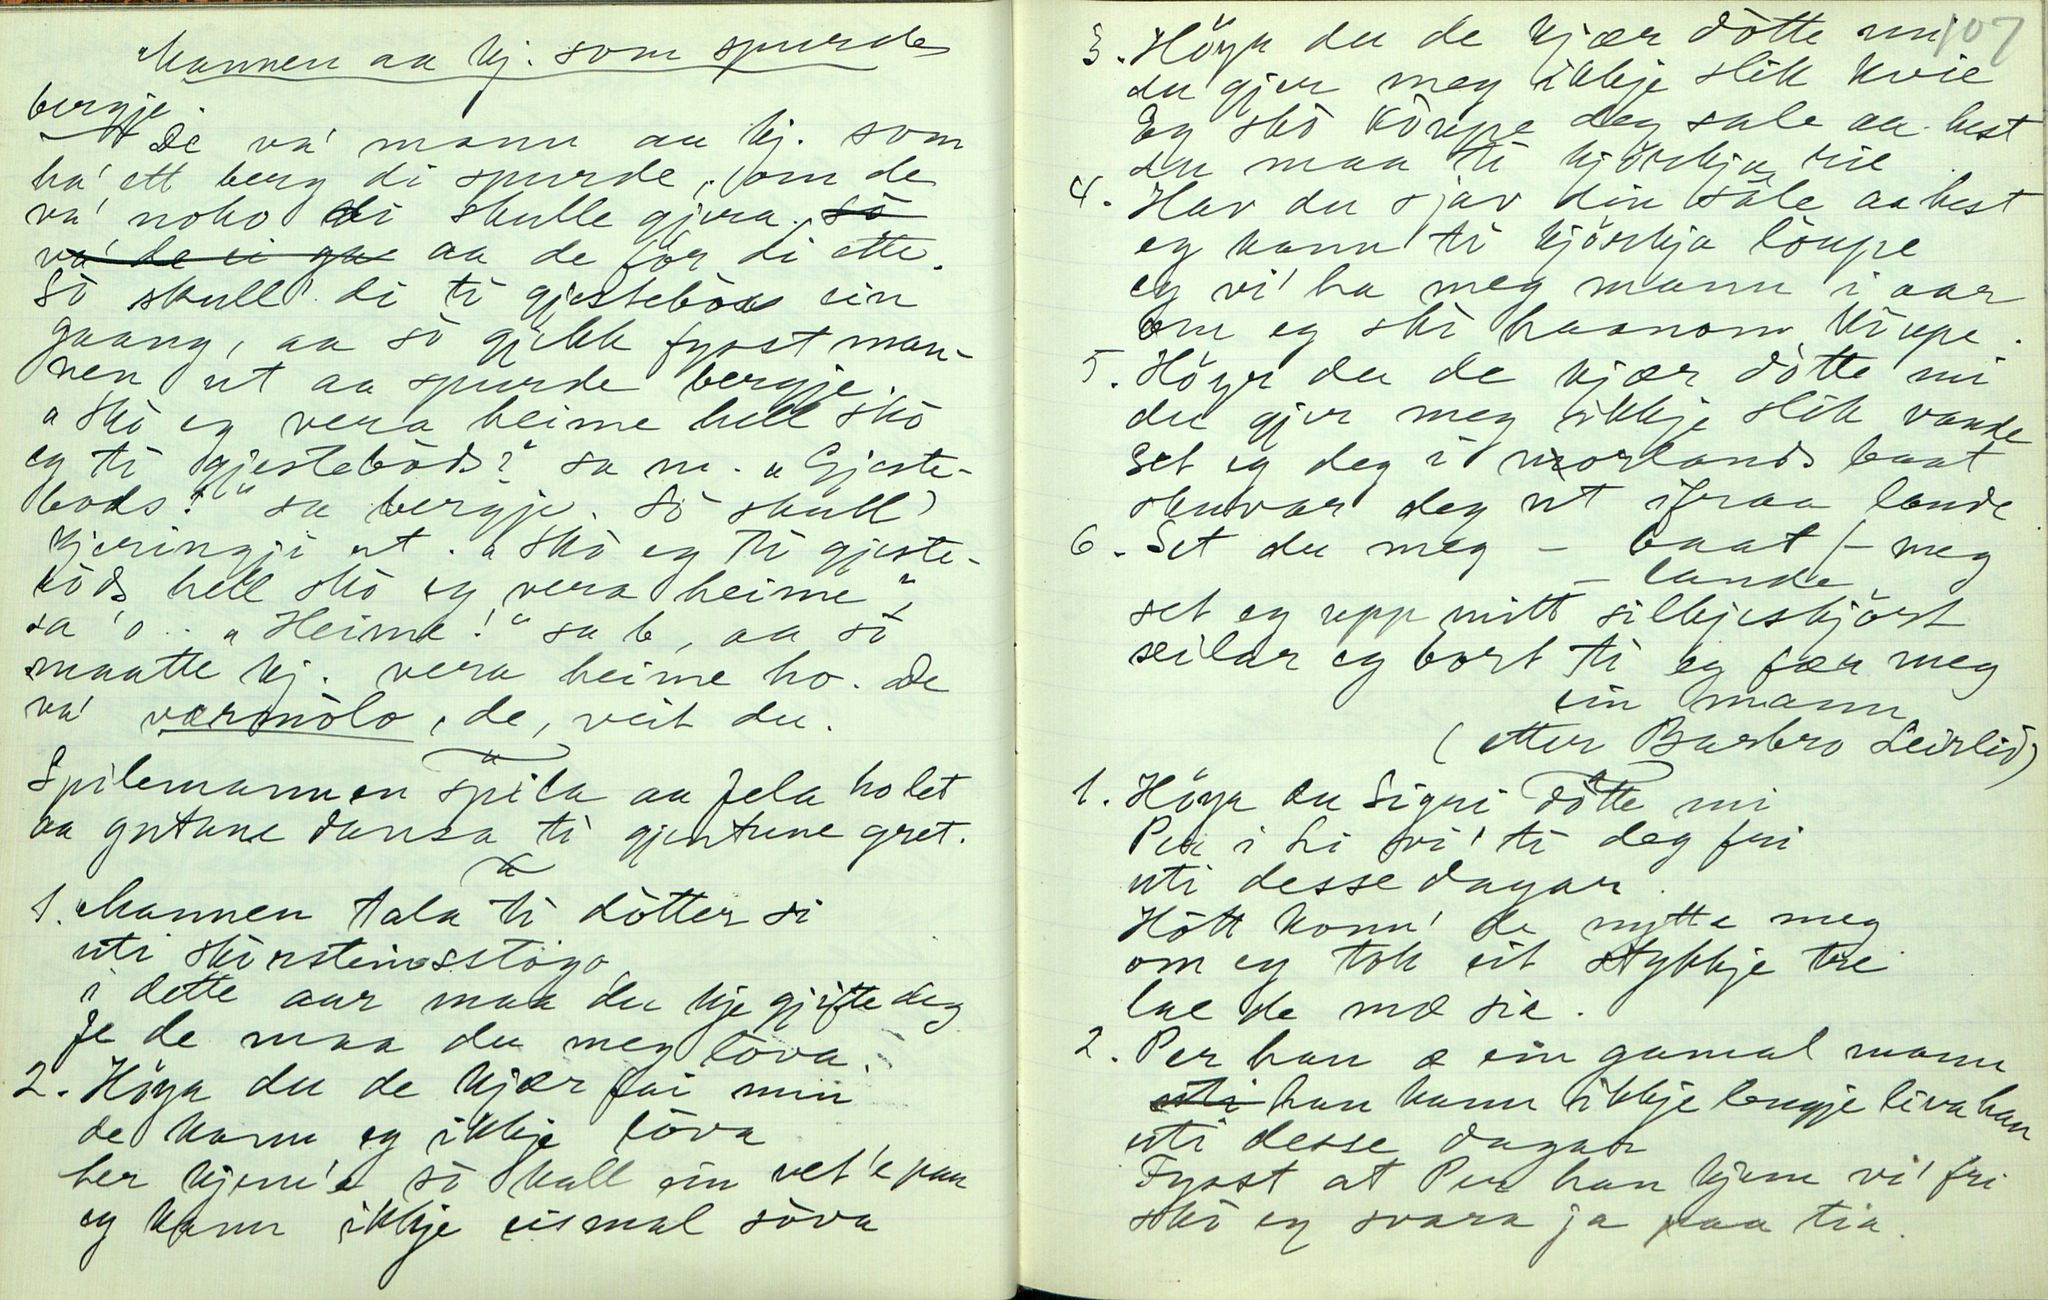 Mannen aa kj. som spurde
bergje.
De va' mann aa kj. som
ha' ett berg di spurde, om de
va' noko di skulle gjera. so
va' de ei ga aa de for di ette.
So skull' di ti gjestebods ein
gaang, aa so gjekk fysst man-
nen ut aa spurde bergje.
"Sko eg vera heime hell sko
eg ti gjestebods?" sa m. "Gjeste-
bods!" sa bergje. So skull'
kjeringji ut. "Sko eg ti gjeste-
bods hell sko eg vera heime",
sa 'o. "Heime!" sa b, aa so
maatte kj. vera heime ho. De
va' værmolo, de, veit du.
Spilemannen spila aa fela holet
aa gutane dansa ti gjentune gret.
1. Mannen tala ti dotter si
uti skorsteinsstogo
i dette aar maa du kje gjifte deg
Je de maa du meg lova.
2. Höyr du de kjær fai min
de kann eg ikkje lova
her kjem'e so kall ein vet'e paa
eg kann ikkje eismal sova
107
3. Höyr du de kjær dotte mi
du gjer meg ikkje slik kvie
Eg sko köupe deg sale aa hest
du maa ti kjörkju rie
4. Hav du sjav din sale aa hest
eg kann ti kjörkja löupe
eg vi' ha meg mann i aar
om eg sko haanom köupe.
5. Höyr du de kjær dotte mi
du gjer meg ikkje slik vande
Set eg deg i morlands baat
skuvar deg ut ifraa lande
6. Set du meg – baat /– meg
– lande
set eg upp mitt silkjeskjört
seilar eg bort ti eg fær meg
ein mann
(etter Barbro Leirlid)
1. Höyr du Signi dotte mi
Per i Li vi' ti deg fri
uti desse dagar.
Hott konn' de nytte meg
om eg tok eit stykkje tre
lae de mæ sia.
2. Per han æ ein gamal mann
uti han kann ikkje lengje liva han
uti desse dagar
Fysst at Per han kjem vi' fri
sko eg svara ja paa tia.